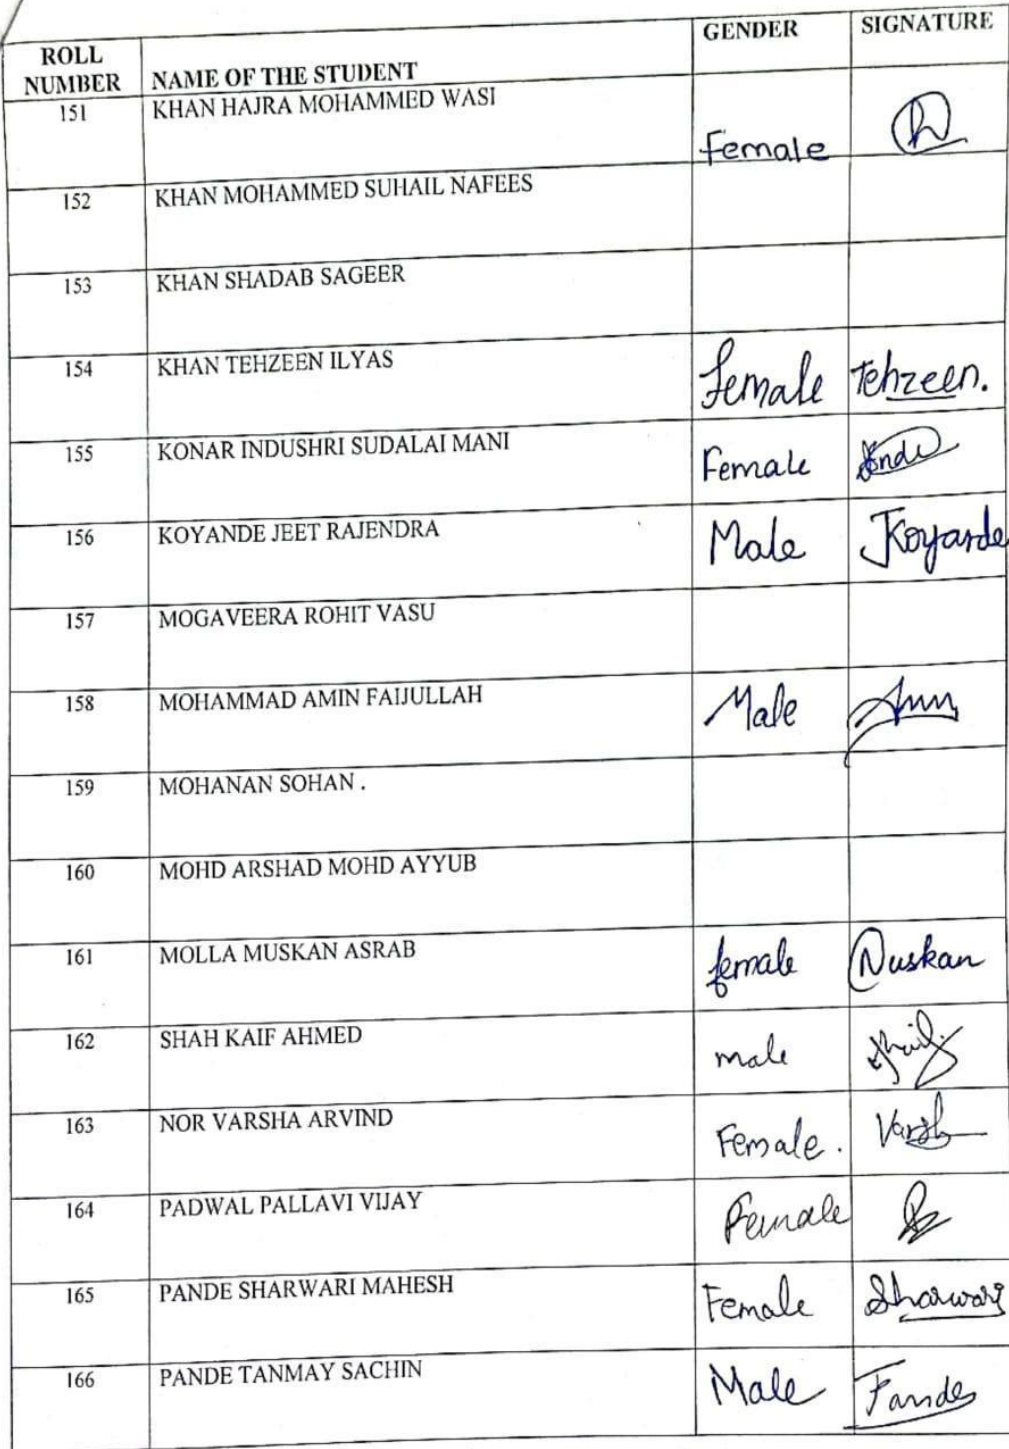 ROLL NUMBER NAME OF THE STUDENT GENDER SIGNATURE
151 KHAN HAJRA MOHAMMED WASI Female
152 KHAN MOHAMMED SUHAIL NAFEES
153 KHAN SHADAB SAGEER
154 KHAN TEHZEEN ILYAS Female Tehzeen.
155 KONAR INDUSHRI SUDALAI MANI Female
156 KOYANDE JEET RAJENDRA Male JKoyande
157 MOGAVEERA ROHIT VASU
158 MOHAMMAD AMIN FAIJULLAH Male
159 MOHANAN SOHAN .
160 MOHD ARSHAD MOHD AYYUB
161 MOLLA MUSKAN ASRAB female Muskan
162 SHAH KAIF AHMED male
163 NOR VARSHA ARVIND Female.
164 PADWAL PALLAVI VIJAY Female
165 PANDE SHARWARI MAHESH Female Sharwari
166 PANDE TANMAY SACHIN Male